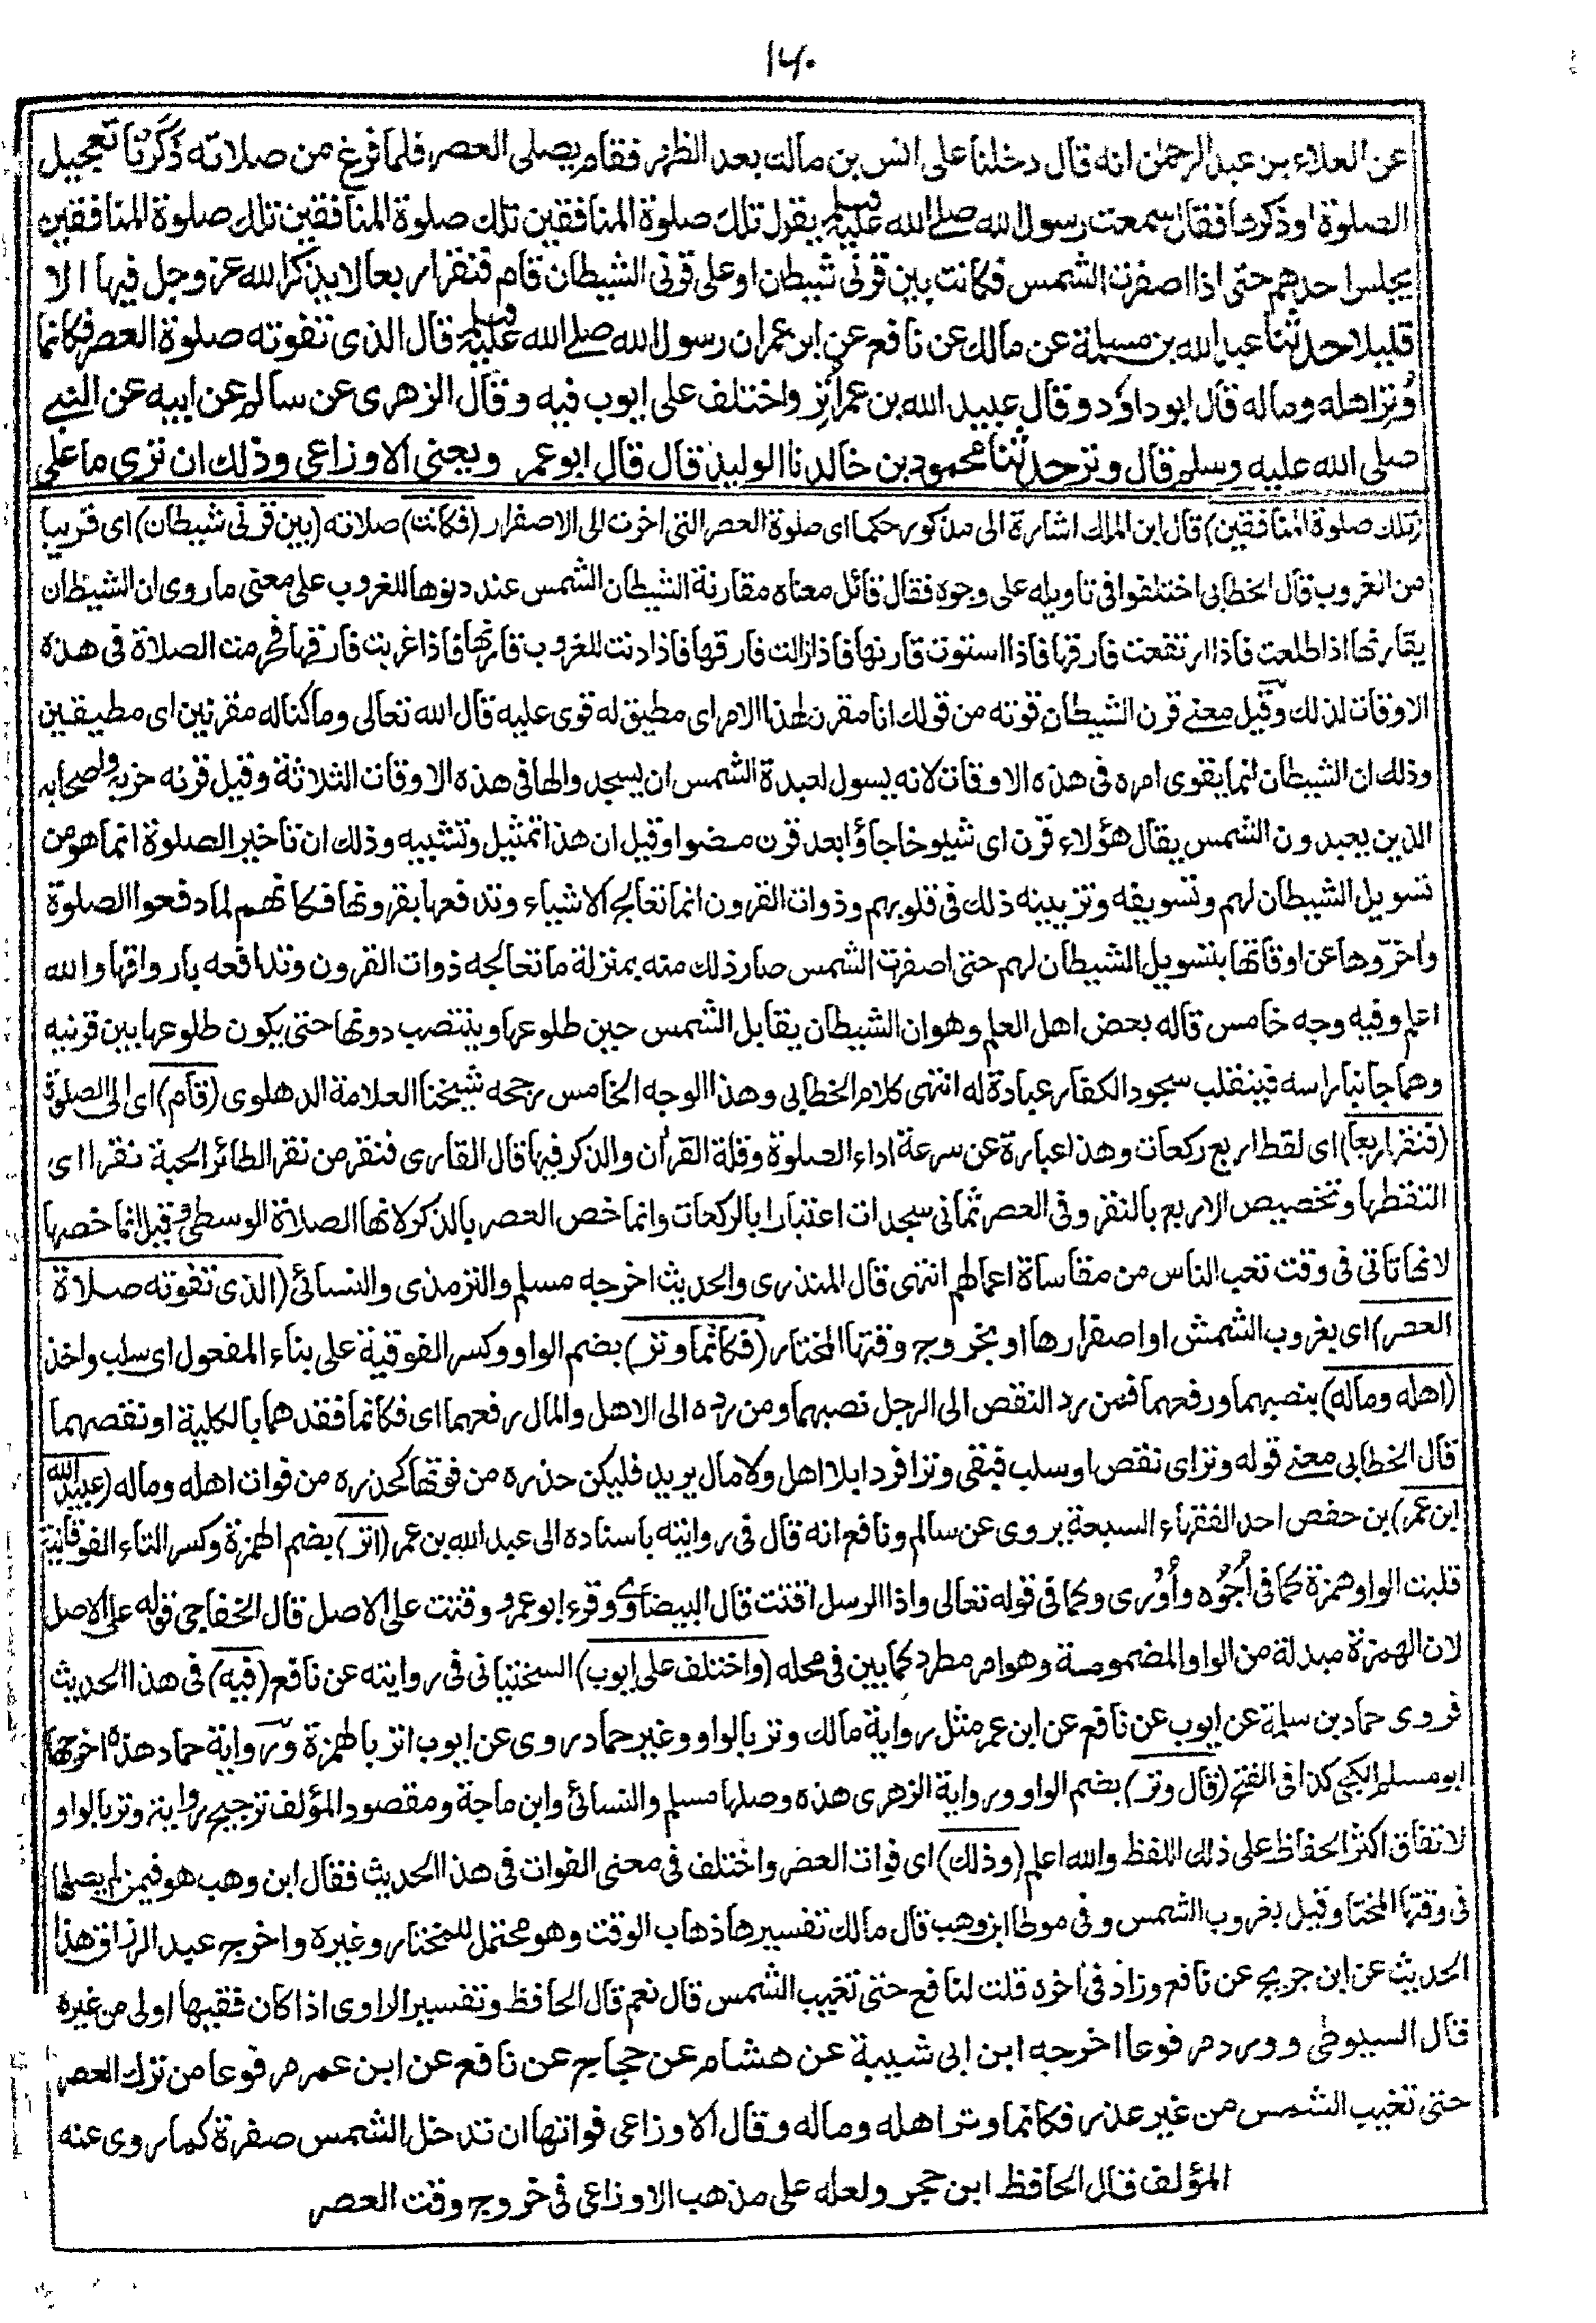 ١٦٠
عن العلاء بن عبد الرحمٰن انه قال دخلنا على انس بن مالك بعد الظهر فقام يصلى العصر فلما فرغ من صلاته ذكرنا تعجيل
الصلوة او ذكرها فقال سمعت رسول الله صلى الله عليه وسلم يقول تلك صلوة المنافقين تلك صلوة المنافقين تلك صلوة المنافقين
يجلس احدهم حتى اذا اصفرت الشمس فكانت بين قرنى شيطان او على قرنى الشيطان قام فنقر اربعا لا يذكر الله عز وجل فيها الا
قليلا حدثنا عبد الله بن مسلمة عن مالك عن نافع عن ابن عمر ان رسول الله صلى الله عليه وسلم قال الذى تفوته صلوة العصر فكانما
وُتر اهله وماله قال ابو داؤد وقال عبيد الله بن عمر اُتر واختلف على ايوب فيه وقال الزهرى عن سالم عن ابيه عن النبى
صلى الله عليه وسلم قال وتر حدثنا محمود بن خالد نا الوليد قال قال ابو عمر و يجنى الاوزاعى وذلك ان ترى ما على
(تلك صلوة المنافقين) قال ابن الملك اشارة الى مذكور حكما اى صلوة العصر التى اخرت الى الاصفرار (فكانت) صلاته (بين قرنى شيطان) اى قريبا
من الغروب قال الخطابى اختلفوا فى تاويله على وجوه فقال قائل معناه مقارنة الشيطان الشمس عند دنوها للغروب على معنى ما روى ان الشيطان
يقارنها اذا طلعت فاذا ارتفعت فارقها فاذا استوت قارنها فاذا زالت فارقها فاذا دنت للغروب قارنها فاذا غربت فارقها فحرمت الصلاة فى هذه
الاوقات لذلك وقيل معنى قرن الشيطان قوته من قولك انا مقرن لهذا الامر اى مطيق له قوى عليه قال الله تعالى وما كنا له مقرنين اى مطيقين
وذلك ان الشيطان انما يقوى امره فى هذه الاوقات لانه يسول لعبدة الشمس ان يسجدوا لها فى هذه الاوقات الثلاثة وقيل قرنه حزبه واصحابه
الذين يعبدون الشمس يقال هؤلاء قرن اى شيوخا جاؤا بعد قرن مضوا وقيل ان هذا تمثيل وتشبيه وذلك ان تاخير الصلوة انما هو من
تسويل الشيطان لهم وتسويفه وتزيينه ذلك فى قلوبهم وذوات القرون انما تعالج الاشياء وتدفعها بقرونها فكانهم لما دفعوا الصلوة
واخّروها عن اوقاتها بتسويل الشيطان لهم حتى اصفرت الشمس صار ذلك منه بمنزلة ما تعالجه ذوات القرون وتدافعه بارواقها والله
اعلم وفيه وجه خامس قاله بعض اهل العلم وهو ان الشيطان يقابل الشمس حين طلوعها وينتصب دونها حتى يكون طلوعها بين قرنيه
وهما جانبا راسه فينقلب سجود الكفار عبادة له انتهى كلام الخطابى وهذا الوجه الخامس رجحه شيخنا العلامة الدهلوى (قام) اى الى الصلوة
(فنقر اربعا) اى لقط اربع ركعات وهذا عبارة عن سرعة اداء الصلوة وقلة القرأن والذكر فيها قال القارى فنقر من نقر الطائر الحبة نقرا اى
التقطها وتخصيص الاربع بالنقر وفى العصر ثمانى سجدات اعتبارا بالركعات وانما خص العصر بالذكر لانها الصلاة الوسطى وقيل انما خصها
لانها تاتى فى وقت تعب الناس من مقاساة اعمالهم انتهى قال المنذرى والحديث اخرجه مسلم والترمذى والنسائى (الذى تفوته صلاة
العصر) اى بغروب الشمش او اصفرارها او بخروج وقتها المختار (فكانما وتر) بضم الواو وكسر الفوقية على بناء المفعول اى سلب واخذ
(اهله وماله) بنصبهما ورفعهما فمن رد النقص الى الرجل نصبهما ومن رده الى الاهل والمال رفعهما اى فكانما فقدهما بالكلية او نقصهما
قال الخطابى معنى قوله وتر اى نقص او سلب فبقى وترا فردا بلا اهل ولا مال يريد فليكن حذره من فوتها كحذره من فوات اهله وماله (عبيد الله
ابن عمر) بن حفص احد الفقهاء السبعة يروى عن سالم ونافع انه قال فى روايته باسناده الى عبد الله بن عمر (اتر) بضم الهمزة وكسر التاء الفوقانية
قلبت الواو همزة كما فى اُجُوُه واُوْرى وكما فى قوله تعالى واذا الرسل اقتت قال البيضاوى وقرء ابو عمرو وقتت على الاصل قال الخفاجى قوله على الاصل
لان الهمزة مبدلة من الواو المضمومة وهو امر مطرد كما يبين فى محله (واختلف على ايوب) السختيانى فى روايته عن نافع (فيه) فى هذا الحديث
فروى حماد بن سلمة عن ايوب عن نافع عن ابن عمر مثل رواية مالك وتر بالواو وغير حماد روى عن ايوب اتر بالهمزة ورواية حماد هذه اخرجها
ابو مسلم الكجى كذا فى الفتح (قال وتر) بضم الواو ورواية الزهرى هذه وصلها مسلم والنسائى وابن ماجة ومقصود المؤلف ترجيح رواية وتر بالواو
لاتفاق اكثر الحفاظ على ذلك اللفظ والله اعلم (وذلك) اى فوات العصر واختلف فى معنى الفوات فى هذا الحديث فقال ابن وهب هو فيمن لم يصلها
فى وقتها المختار وقيل بغروب الشمس وفى موطا ابن وهب قال مالك تفسيرها ذهاب الوقت وهو محتمل للمختار وغيره واخرج عبد الرزاق هذا
الحديث عن ابن جريج عن نافع وزاد فى اخره قلت لنافع حتى تغيب الشمس قال نعم قال الحافظ وتفسير الراوى اذا كان فقيها اولى من غيره
قال السيوطى وورد مرفوعا اخرجه ابن ابى شيبة عن هشام عن حجاج عن نافع عن ابن عمر مرفوعا من ترك العصر
حتى تغيب الشمس من غير عذر فكانما وتر اهله وماله وقال الاوزاعى فواتها ان تدخل الشمس صفرة كما روى عنه
المؤلف قال الحافظ ابن حجر ولعله على مذهب الاوزاعى فى خروج وقت العصر